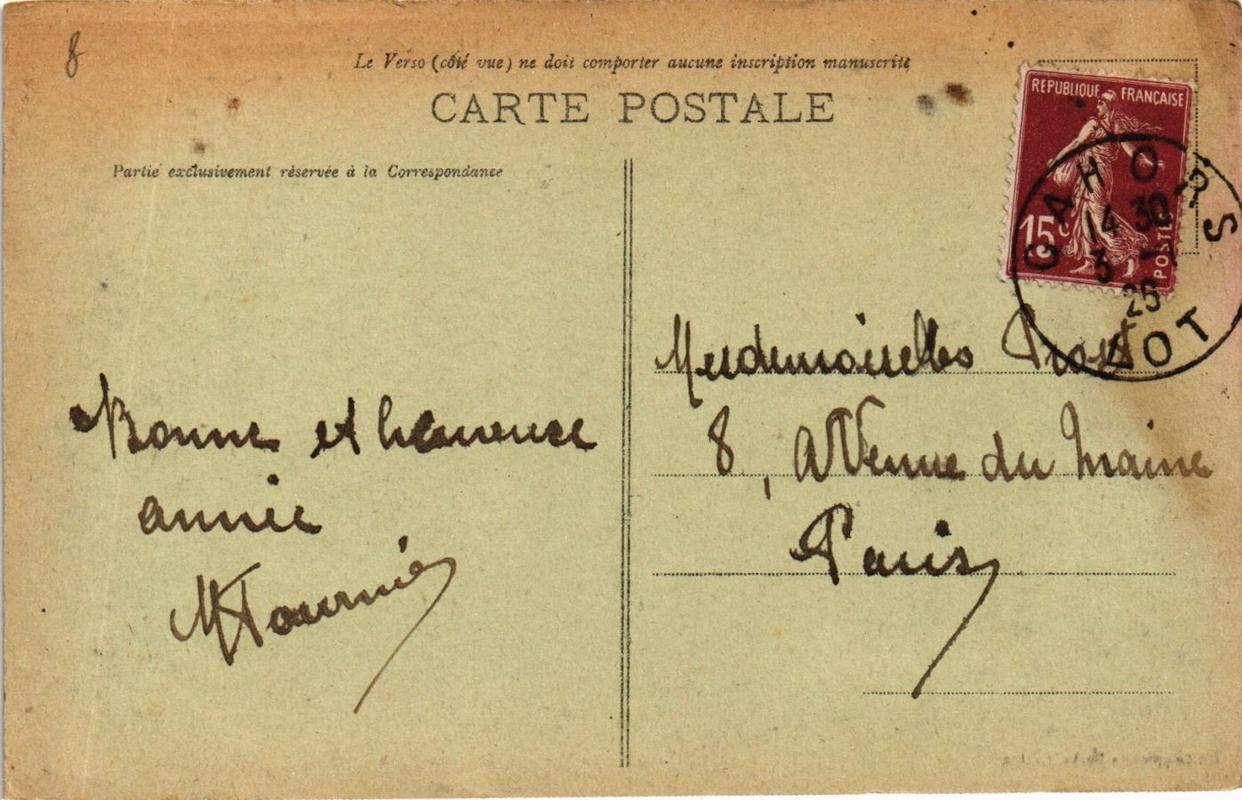 8
Le Verso (côté vue) ne doit comporter aucune inscription manuscrite
CARTE POSTALE
Partie exclusivement réservée à la Correspondance
REPUBLIQUE FRANÇAISE
15c
POSTES
CAHORS
14 30
3 -1
26
LOT
Bonne et heureuse
année
MTournié
Mesdemoiselles
8, Avenue du Maine
Paris